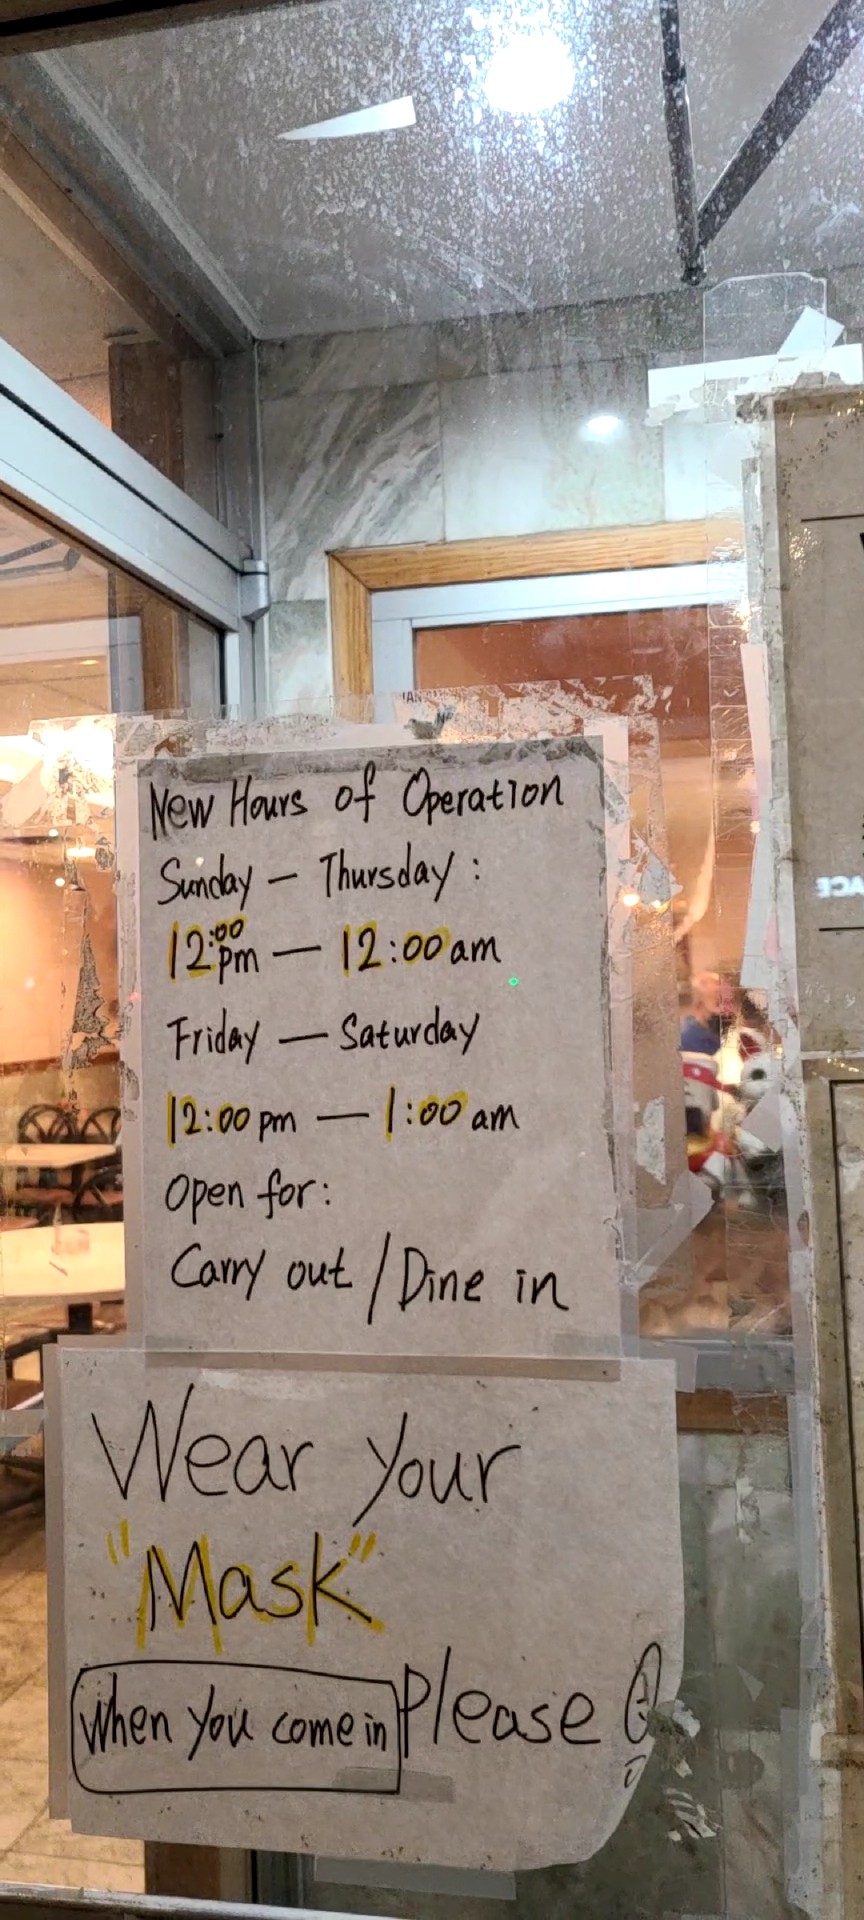 New Hours of Operation
Sunday — Thursday :
12:00 pm — 12:00 am
Friday — Saturday
12:00 pm — 1:00 am
Open for:
Carry out / Dine in
Wear your
"Mask"
When you come in Please